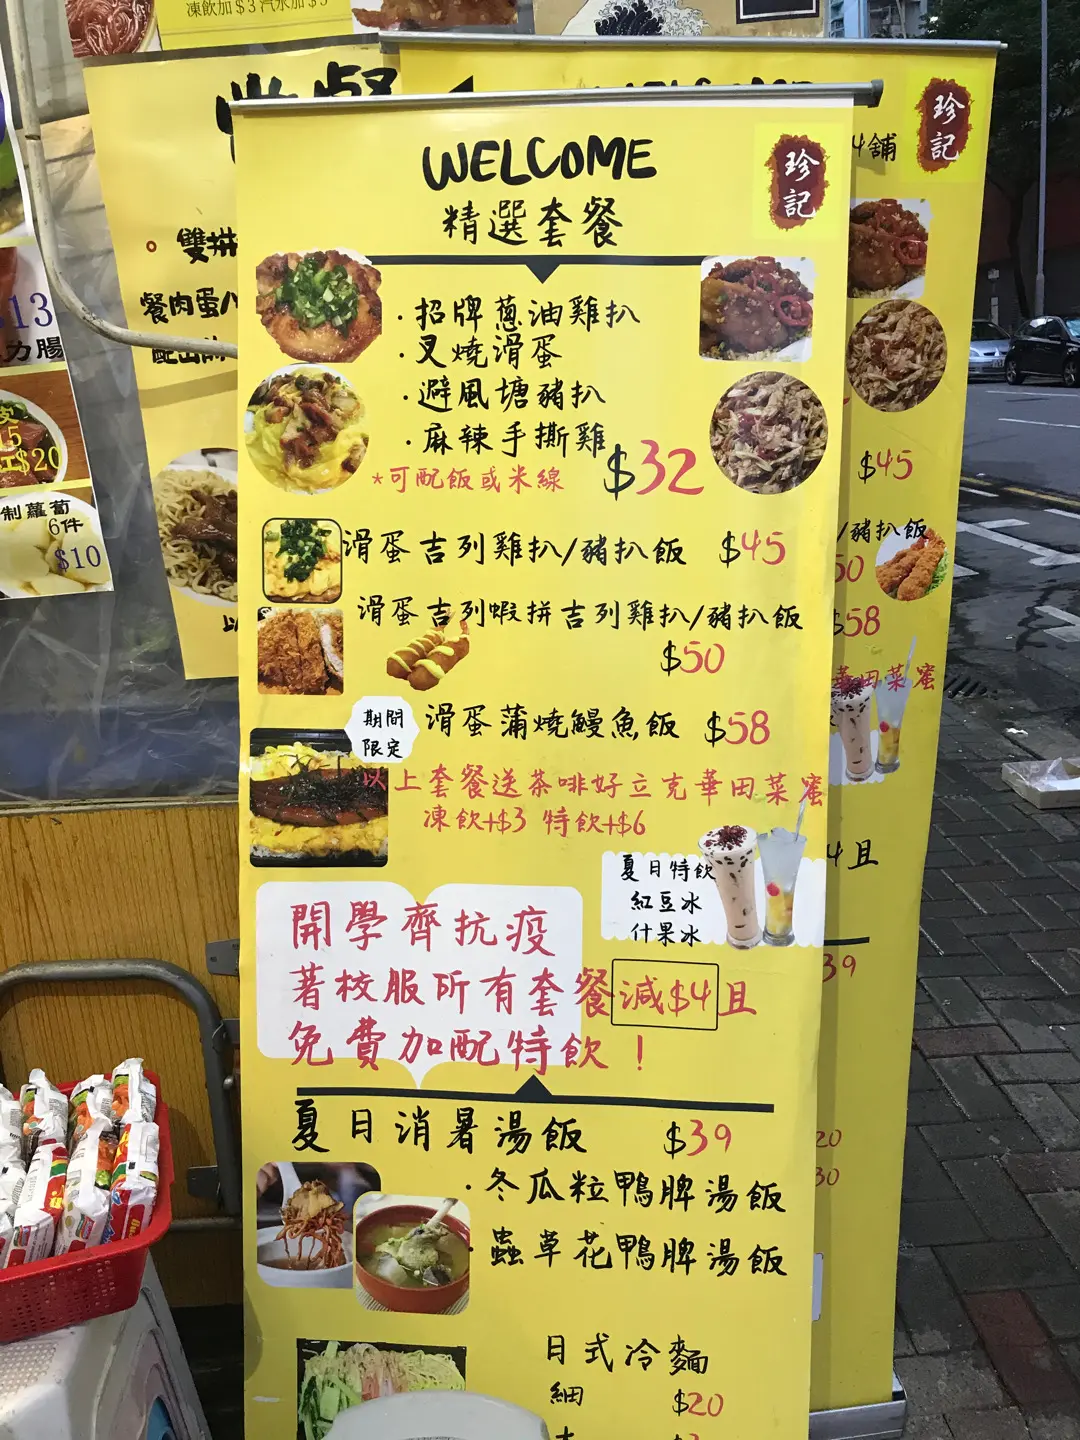 凍飲加$3汽水加$5
WELCOME
精選套餐
珍記
·招牌蔥油雞扒
·叉燒滑蛋
·避風塘豬扒
·麻辣手撕雞
*可配飯或米線 $32
滑蛋吉列雞扒/豬扒飯 $45
滑蛋吉列蝦拼吉列雞扒/豬扒飯
$50
期間
限定
滑蛋蒲燒鰻魚飯 $58
以上套餐送茶啡好立克華田菜蜜
凍飲+$3 特飲+$6
夏日特飲
紅豆冰
什果冰
開學齊抗疫
著校服所有套餐減$4且
免費加配特飲！
夏日消暑湯飯 $39
·冬瓜粒鴨脾湯飯
·蟲草花鴨脾湯飯
日式冷麵
細 $20
珍記
舖
$45
/豬扒飯
50
$58
華田菜蜜
4且
39
20
30
。雙拼
餐肉蛋
$13
力腸
15
$20
制蘿蔔
6件
$10